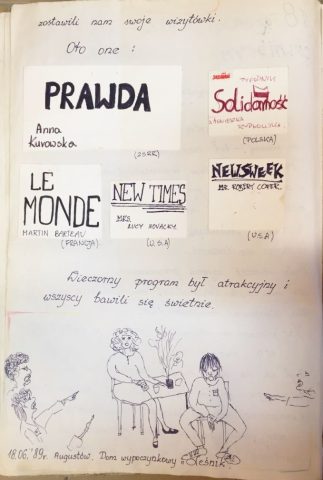 zostawili nam swoje wizytówki.
Oto one :
PRAWDA
Anna
Kurowska
(ZSRR)
TYGODNIK
Solidarność
(POLSKA)
LE
MONDE
MARTIN BARTEAU
(FRANCJA)
NEW TIMES
MRS.
LUCY NOVACKY.
(U.S.A)
NEWSWEEK
MR. ROBERY
(U.S.A)
Wieczorny program był atrakcyjny i
wszyscy bawili się świetnie.
18.06.'89r. Augustów. Dom wypoczynkowy „Leśnik"